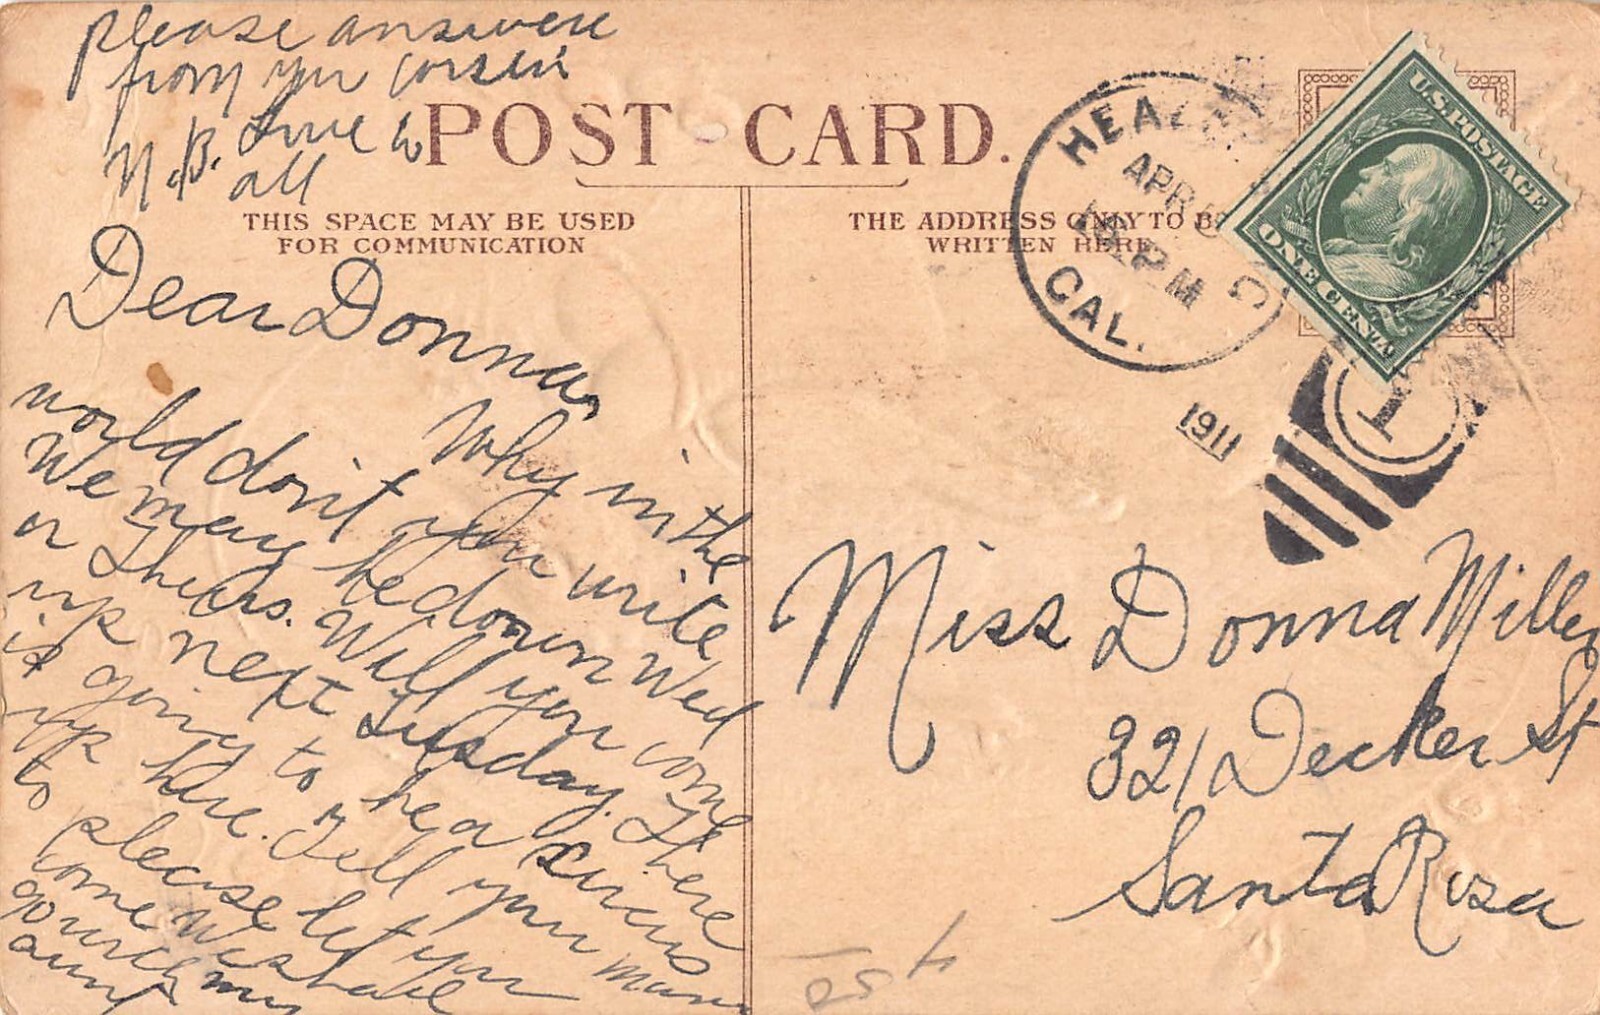 please answere
from yur corsein
N.B. Love to
all
POST CARD.
THIS SPACE MAY BE USED
FOR COMMUNICATION
THE ADDRESS ONLY TO B
WRITTEN HERE
HEAL
APR
PM
CAL.
1911
U.S. POSTAGE
ONE CENT
1
Dear Donna,
Why in the
world don't you write
We may be down Wed
or Thurs. Will you come
up next Tuesday. There
is going to be a circus
up here. Tell your mam
to please let you
come We shall
go with my
aunt
Miss Donna Miller
321 Decker St
Santa Rosa